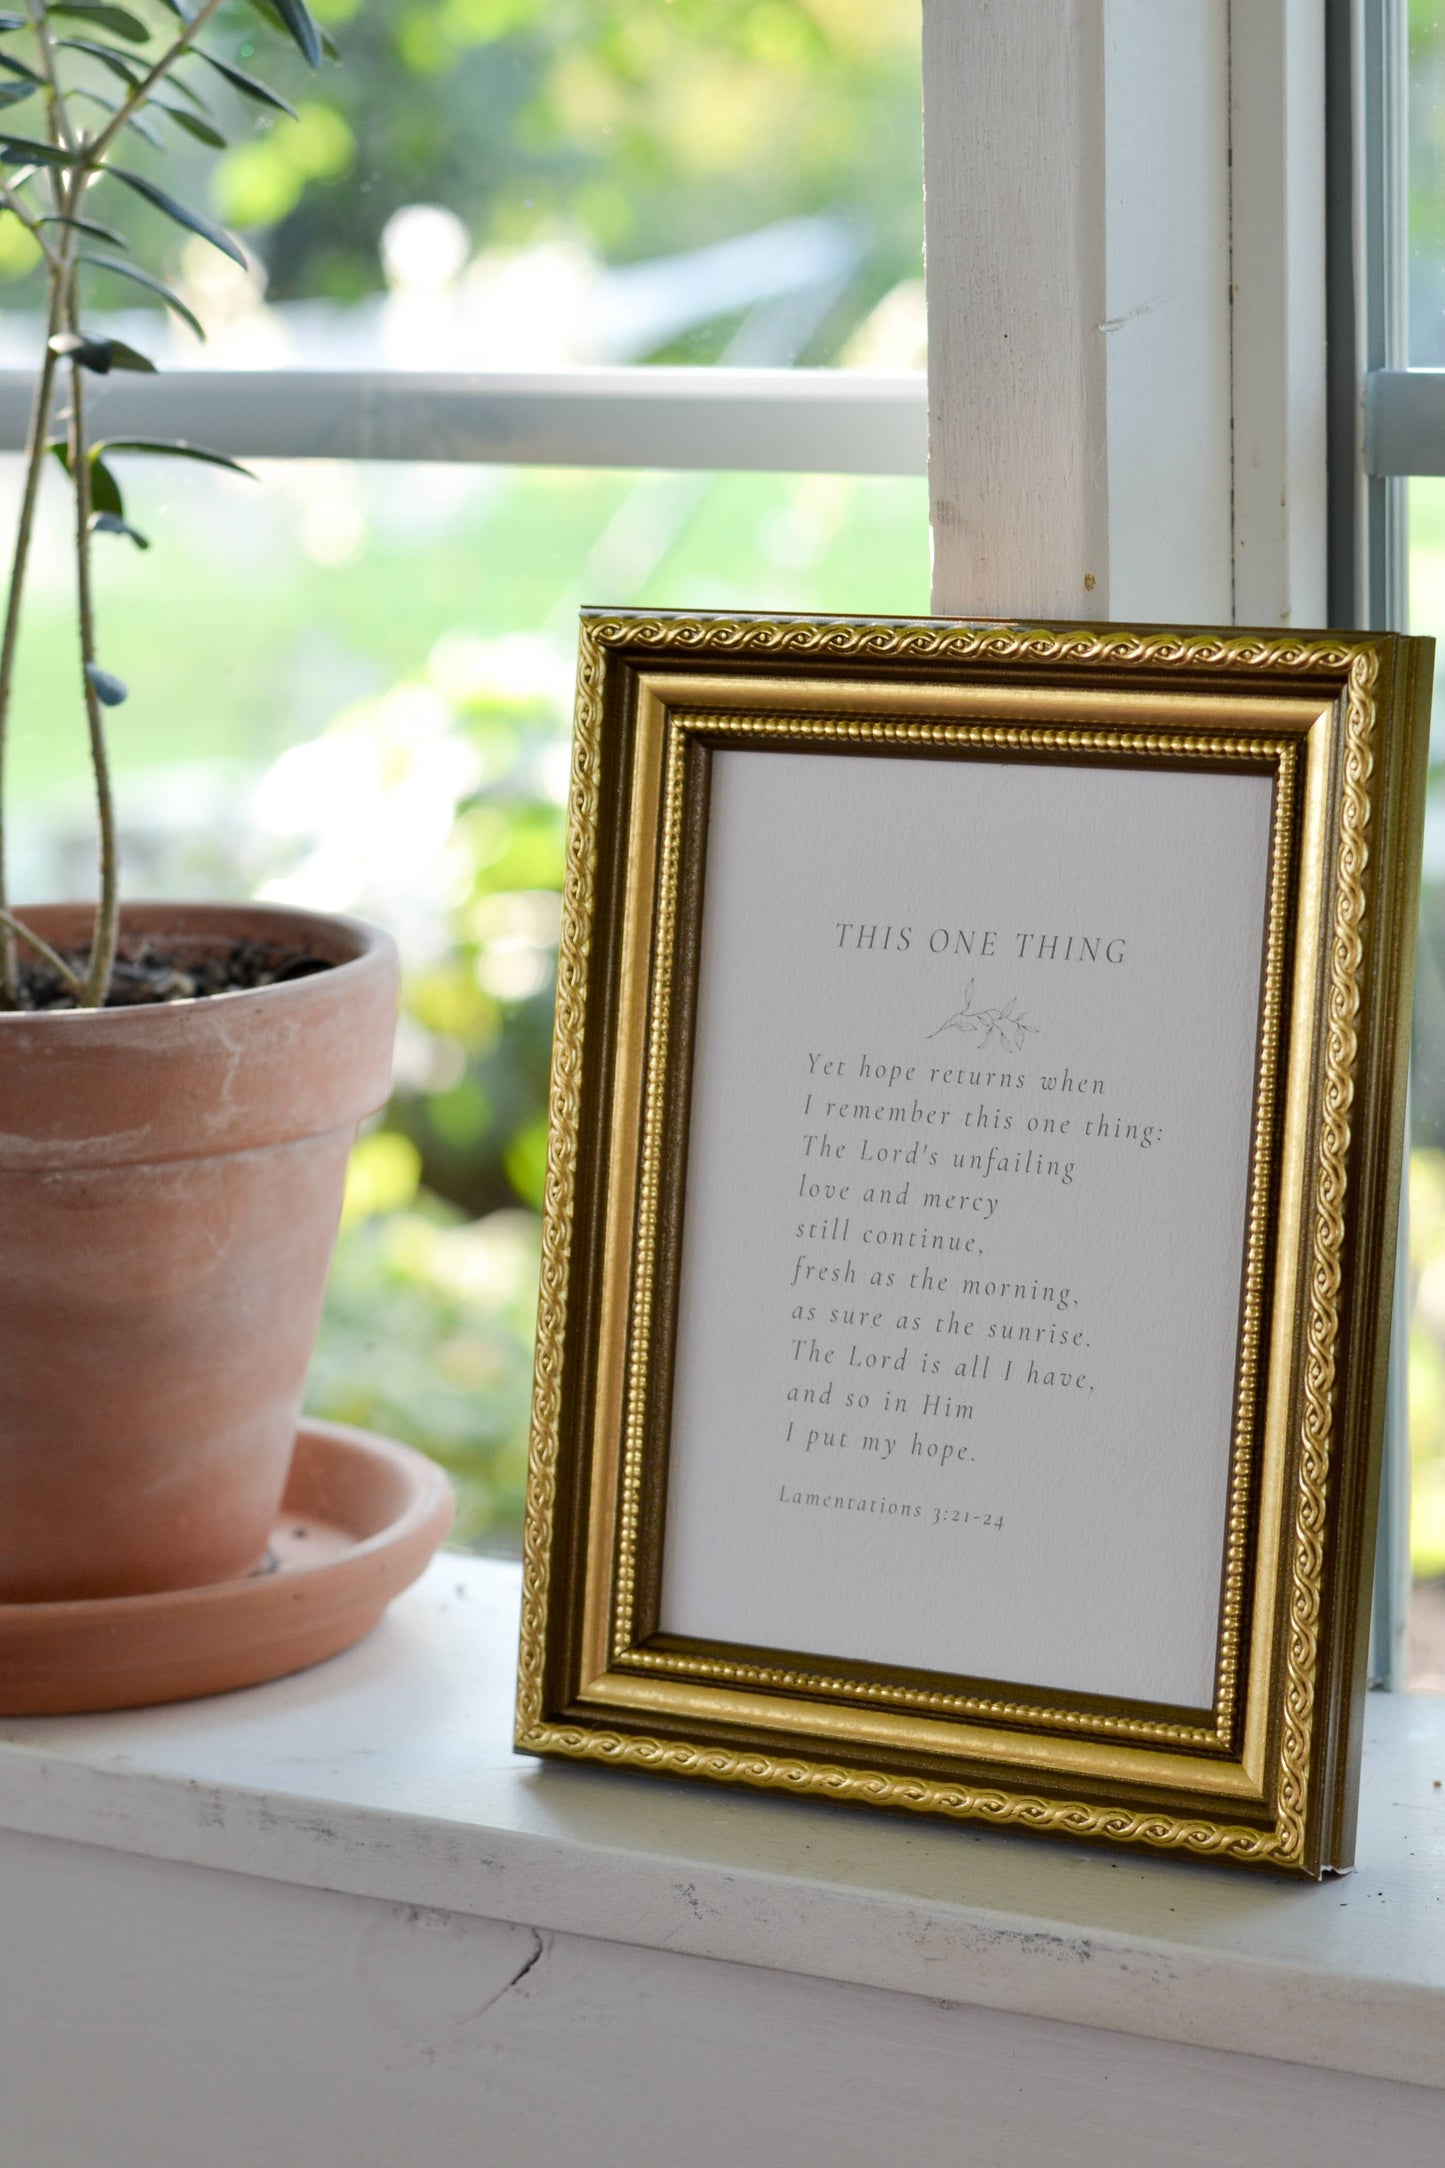 THIS ONE THING
Yet hope returns when
I remember this one thing:
The Lord's unfailing
love and mercy
still continue,
fresh as the morning,
as sure as the sunrise.
The Lord is all I have,
and so in Him
I put my hope.
Lamentations 3:21-24